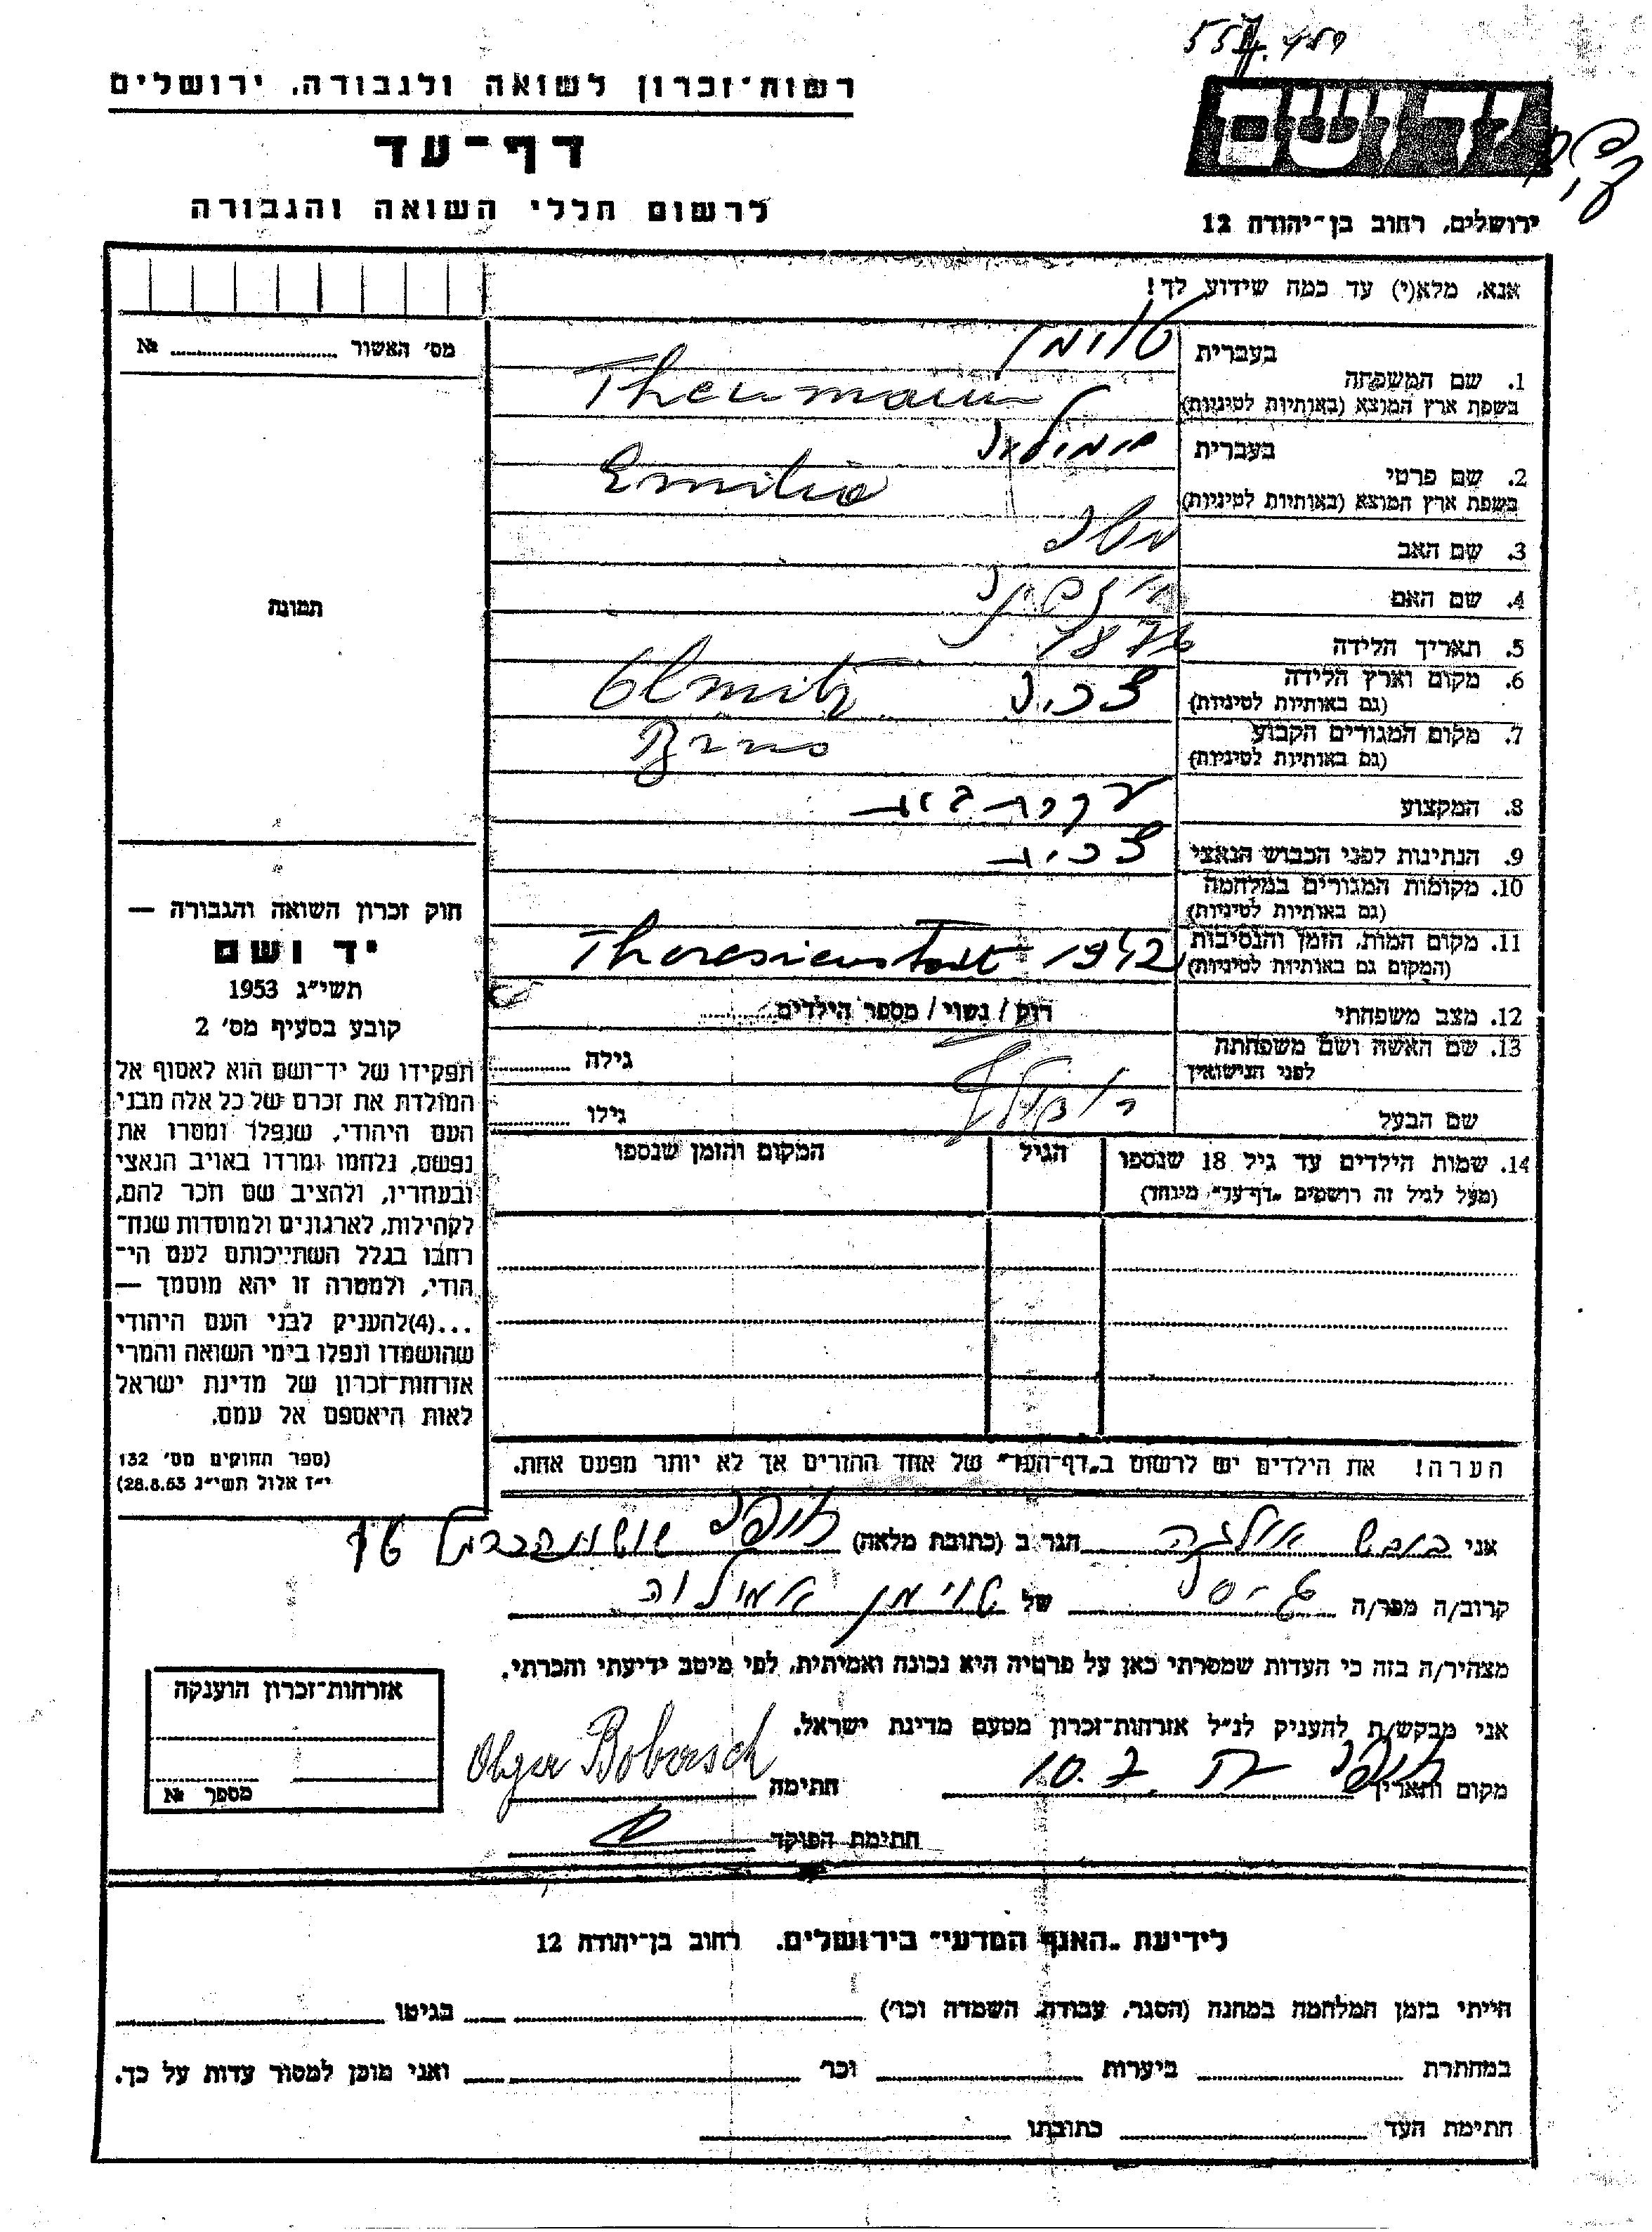 רשות־זכרון לשואה ולגבורה, ירושלים
דף־עד
לרשום חללי השואה והגבורה
יד ושם
ירושלים, רחוב בן־יהודה 12
אנא, מלא(י) עד כמה שידוע לך!
מס׳ האשור № 
1. שם המשפחה
בעברית טוימן
בשפת ארץ המוצא (באותיות לטיניות) Theumann
2. שם פרטי
בעברית
בשפת ארץ המוצא (באותיות לטיניות) Emilia
3. שם האב
4. שם האם
5. תאריך הלידה
6. מקום וארץ הלידה
(גם באותיות לטיניות) צ׳כיה Olmitz
7. מקום המגורים הקבוע
(גם באותיות לטיניות) Brno
8. המקצוע עקרת בית
9. הנתינות לפני הכבוש הנאצי צ׳כית
10. מקומות המגורים במלחמה
(גם באותיות לטיניות)
11. מקום המות, הזמן והנסיבות
(המקום גם באותיות לטיניות) Theresienstadt 1942
12. מצב משפחתי רוק / נשוי / מספר הילדים
13. שם האשה ושם משפחתה
לפני הנישואין גילה
שם הבעל רודולף גילו
14. שמות הילדים עד גיל 18 שנספו הגיל המקום והזמן שנספו
(מעל לגיל זה רושמים „דף־עד״ מיוחד)
תמונה
חוק זכרון השואה והגבורה —
יד ושם
תשי״ג 1953
קובע בסעיף מס׳ 2
תפקידו של יד־ושם הוא לאסוף אל
המולדת את זכרם של כל אלה מבני
העם היהודי, שנפלו ומסרו את
נפשם, נלחמו ומרדו באויב הנאצי
ובעוזריו, ולהציב שם וזכר להם,
לקהילות, לארגונים ולמוסדות שנח־
רחבו בגלל השתייכותם לעם הי־
הודי, ולמטרה זו יהא מוסמך —
...(4)להעניק לבני העם היהודי
שהושמדו ונפלו בימי השואה והמרי
אזרחות־זכרון של מדינת ישראל
לאות היאספם אל עמם.
(ספר החוקים מס׳ 132
י״ז אלול תשי״ג 28.8.53)
הערה! את הילדים יש לרשום ב„דף־העד״ של אחד ההורים אך לא יותר מפעם אחת.
אני בובש אולגה הגר ב (כתובת מלאה) חיפה
קרוב/ה מפר/ה של טוימן אמיליה
מצהיר/ה בזה כי העדות שמסרתי כאן על פרטיה היא נכונה ואמיתית, לפי מיטב ידיעתי והכרתי.
אני מבקש/ת להעניק לנ״ל אזרחות־זכרון מטעם מדינת ישראל.
מקום ותאריך חיפה חתימה Olga Bobasch
חתימת הפוקד
אזרחות־זכרון הוענקה
מספר №
לידיעת „האגף המדעי״ בירושלים. רחוב בן־יהודה 12
הייתי בזמן המלחמה במחנה (הסגר, עבודה, השמדה וכו׳) בגיטו
במחתרת ביערות וכו׳ ואני מוכן למסור עדות על כך.
חתימת העד כתובתו